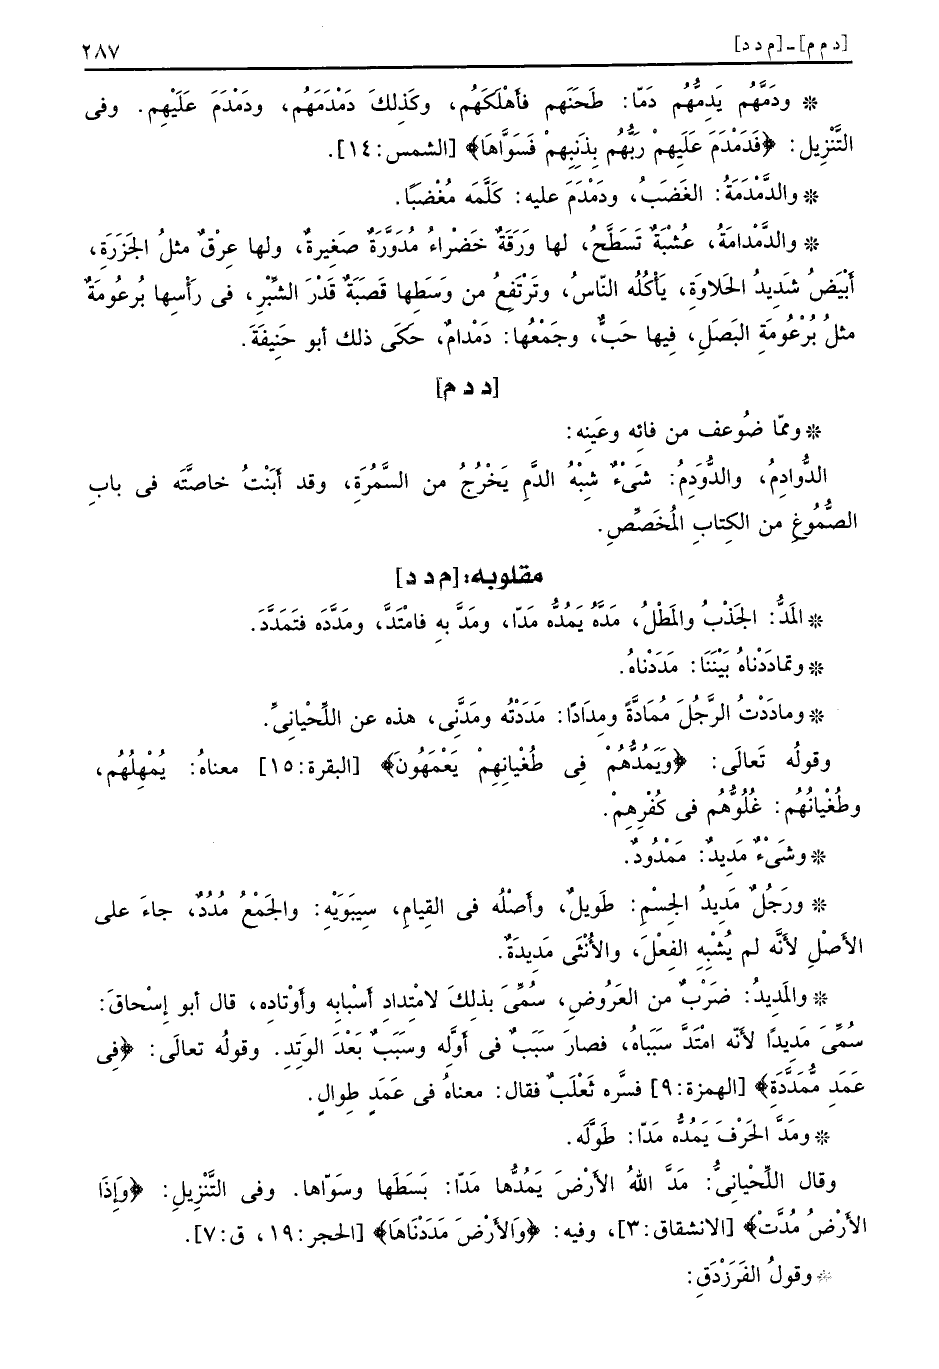 [د م م] ـ [م د د]
٢٨٧
* ودَمَّهُم يَدِمُّهُم دَمّا: طَحَنَهم فأهْلَكَهُم، وكَذلكَ دَمْدَمَهُم، ودَمْدَمَ عَلَيْهِم. وفى
التَّنْزِيل: ﴿فَدَمْدَمَ عَلَيهِمْ رَبُّهُم بِذَنبِهِمْ فَسَوَّاهَا﴾ [الشمس:١٤].
* والدَّمْدَمَةُ: الغَضَبُ، ودَمْدَمَ عليه: كَلَّمَه مُغْضَبًا.
* والدَّمْدامَةُ، عُشْبَةٌ تَسَطَّحُ، لها وَرَقَةٌ خَضْراءُ مُدَوَّرَةٌ صَغيرةٌ، ولها عِرْقٌ مثلُ الجَزَرَةِ،
أبْيَضُ شَديدُ الحَلاوَةِ، يَأكُلُه النّاس، وتَرْتَفِعُ من وَسَطِها قَصَبَةٌ قَدْرَ الشِّبْرِ، فى رَأْسِها بُرعُومَةٌ
مثلُ بُرْعُومَةِ البَصَلِ، فِيها حَبٌّ، وجَمْعُها: دَمْدامٌ، حَكَى ذلك أبو حَنِيفَةَ.
[د د م]
* وممّا ضُوعف من فائِه وعَينِه:
الدُّوادِمُ، والدُّوَدِمُ: شَىْءٌ شِبْهُ الدَّمِ يَخْرُجُ من السَّمُرَةِ، وقد أبَنْتُ خاصَّتَه فى بابِ
الصُّمُوغِ من الكِتابِ المُخَصِّصِ.
مقلوبه: [م د د]
* المَدُّ: الجَذْبُ والمَطْلُ، مَدَّهُ يَمُدُّه مَدّا، ومَدَّ بِهِ فامْتَدَّ، ومَدَّدَه فَتَمَدَّدَ.
* وتمادَدْناهُ بَيْنَنَا: مَدَدْناهُ.
* ومادَدْتُ الرَّجُلَ مُمَادَّةً ومِدَادًا: مَدَدْتُه ومَدَّنِى، هذه عن اللِّحْيانىِّ.
وقولُه تَعالَى: ﴿وَيَمُدُّهُمْ فِى طُغْيانِهِمْ يَعْمَهُونَ﴾ [البقرة:١٥] معناهُ: يُمْهِلُهُم،
وطُغْيانُهُم: غُلُوُّهُم فى كُفْرِهِمْ.
* وشَىْءٌ مَدِيدٌ: مَمْدُودٌ.
* ورَجُلٌ مَدِيدُ الجِسْمِ: طَوِيلٌ، وأصْلُه فى القِيامِ، سِيبَوَيْهِ: والجَمْعُ مُدُدٌ، جاءَ على
الأصْلِ لأنَّه لم يُشْبِهِ الفِعْلَ، والأُنْثَى مَدِيدَةٌ.
* والمَدِيدُ: ضَرْبٌ من العَرُوضِ، سُمِّىَ بذلكَ لامْتِدادِ أسْبابِه وأوْتادِه، قال أبو إسْحاقَ:
سُمِّىَ مَدِيدًا لأنّه امْتَدَّ سَبَبَاهُ، فصارَ سَبَبٌ فى أوَّلِه وسَبَبٌ بَعْدَ الوَتِدِ. وقولُه تعالَى: ﴿فِى
عَمَدٍ مُّمَدَّدَةٍ﴾ [الهمزة:٩] فسَّره ثَعْلَبٌ فقال: معناهُ فى عَمَدٍ طِوالٍ.
* ومَدَّ الحَرْفَ يَمُدُّه مَدّا: طَوَّلَه.
وقال اللِّحْيانىُّ: مَدَّ اللهُ الأرْضَ يَمُدُّها مَدّا: بَسَطَها وسَوّاها. وفى التَّنْزِيلِ: ﴿وَإِذَا
الأَرْضُ مُدَّتْ﴾ [الانشقاق:٣]، وفيه: ﴿وَالأَرْضَ مَدَدْنَاهَا﴾ [الحجر:١٩، ق:٧].
* وقولُ الفَرَزْدَقِ: